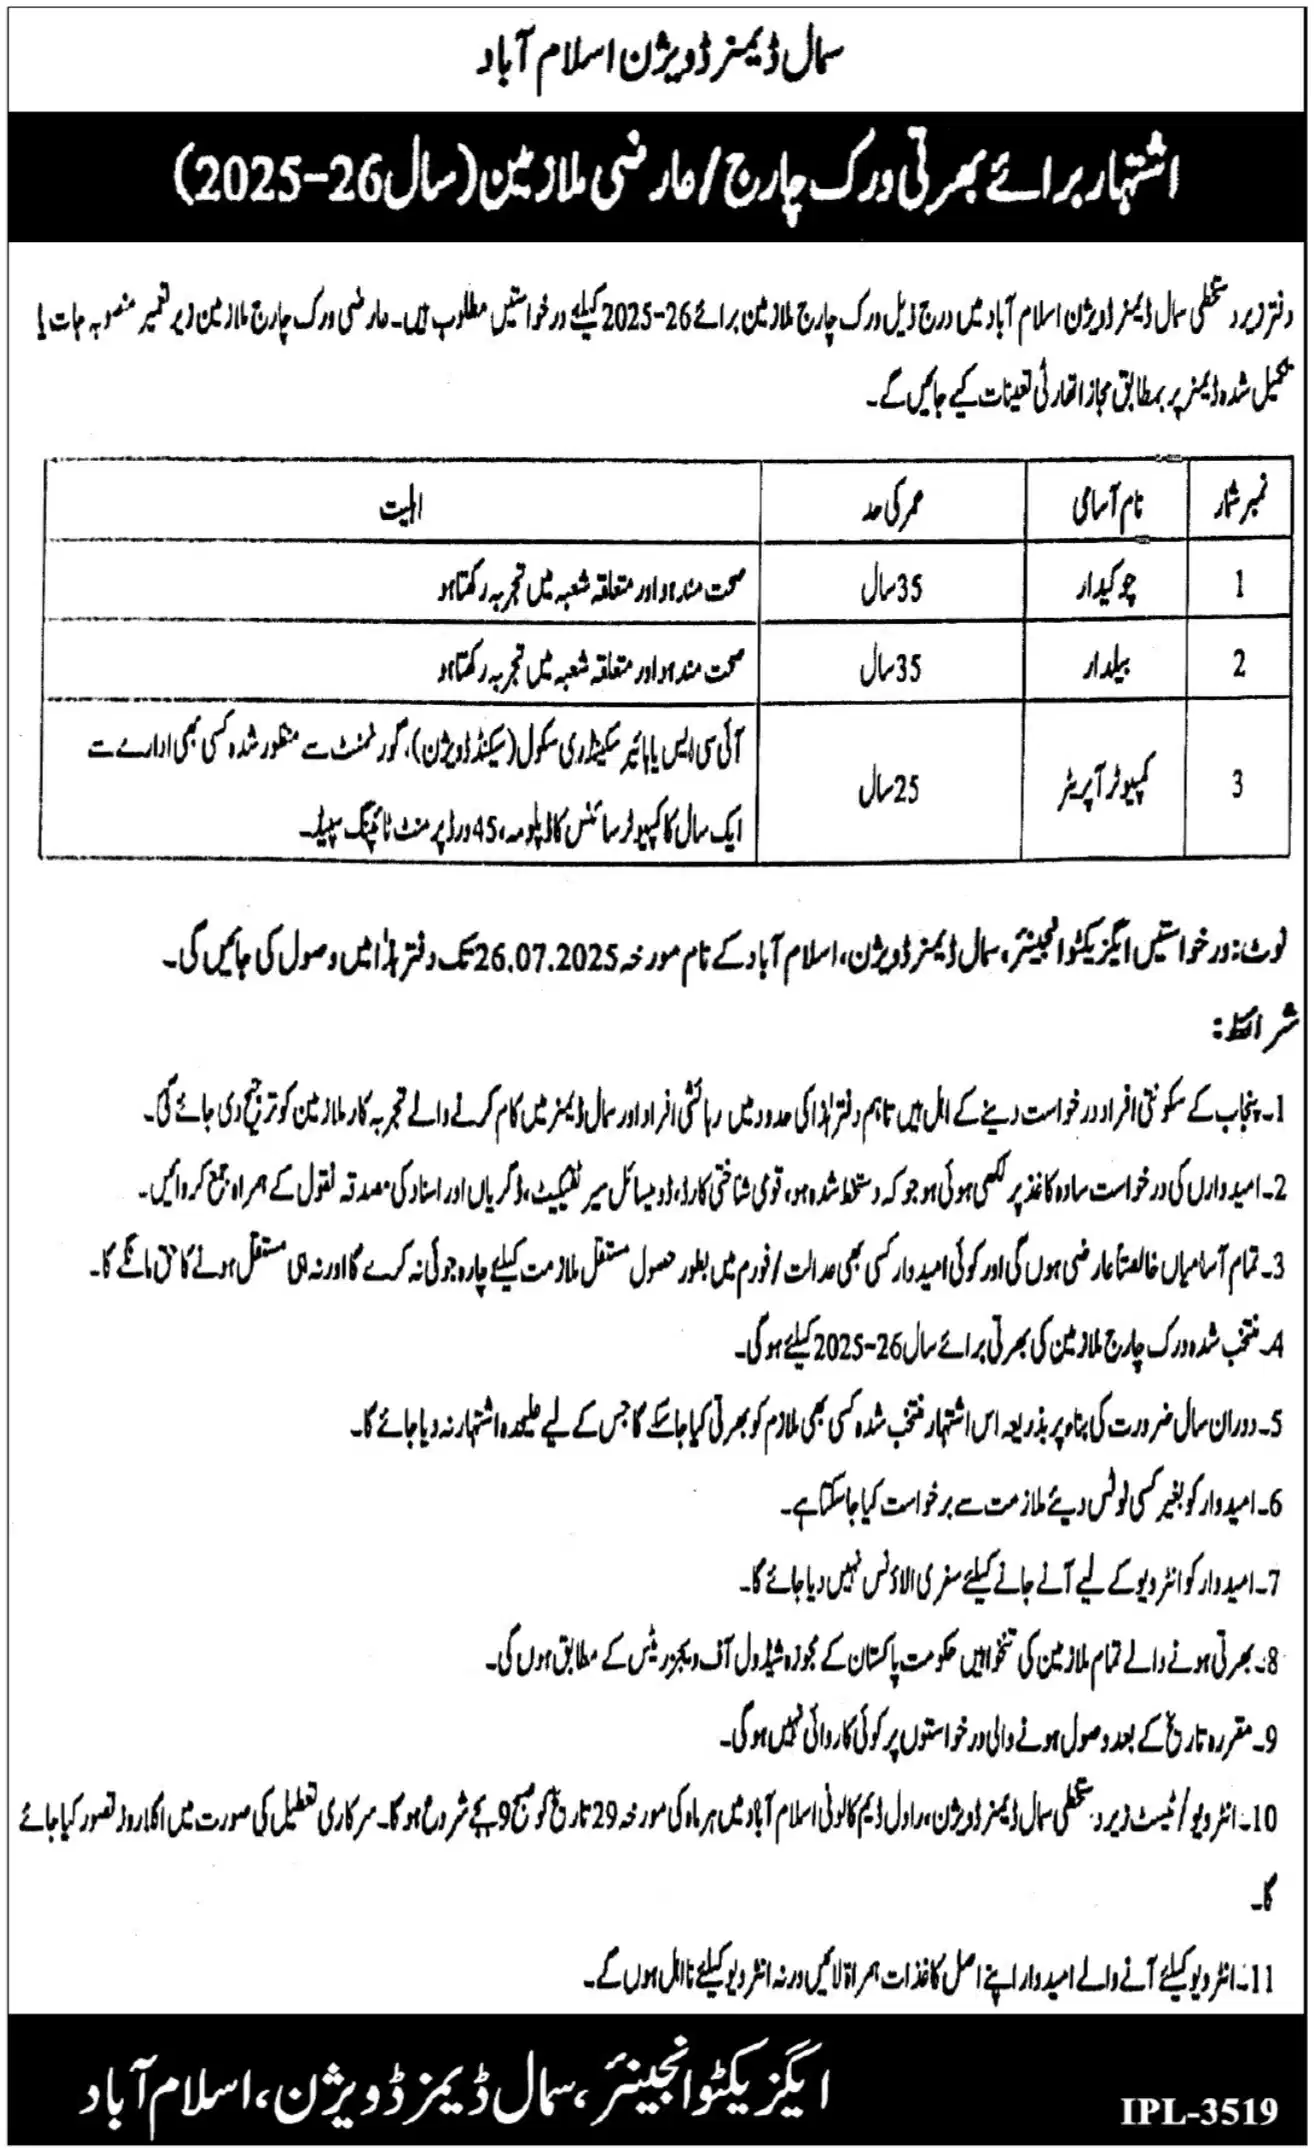 سمال ڈیمز ڈویژن اسلام آباد
اشتہار برائے بھرتی ورک چارج/عارضی ملازمین (سال 26-2025)
دفتر زیر دستخطی سمال ڈیمز ڈویژن اسلام آباد میں درج ذیل ورک چارج ملازمین برائے 26-2025 کیلئے درخواستیں مطلوب ہیں۔ عارضی ورک چارج ملازمین زیر تعمیر منصوبہ جات یا
تکمیل شدہ ڈیمز پر بمطابق مجاز اتھارٹی تعینات کیے جائیں گے۔
نمبر شمار نام آسامی عمر کی حد اہلیت
1 چوکیدار 35 سال صحت مند ہو اور متعلقہ شعبہ میں تجربہ رکھتا ہو
2 بیلدار 35 سال صحت مند ہو اور متعلقہ شعبہ میں تجربہ رکھتا ہو
3 کمپیوٹر آپریٹر 25 سال آئی سی ایس یا ہائیر سیکنڈری سکول (سیکنڈ ڈویژن)، گورنمنٹ سے منظور شدہ کسی بھی ادارے سے
ایک سال کا کمپیوٹر سائنس کا ڈپلومہ، 45 ورڈ پر منٹ ٹائپنگ سپیڈ۔
نوٹ: درخواستیں ایگزیکٹو انجینئر، سمال ڈیمز ڈویژن، اسلام آباد کے نام مورخہ 26.07.2025 تک دفتر ہذا میں وصول کی جائیں گی۔
شرائط:
1۔ پنجاب کے سکونتی افراد درخواست دینے کے اہل ہیں تاہم دفتر ہذا کی حدود میں رہائشی افراد اور سمال ڈیمز میں کام کرنے والے تجربہ کار ملازمین کو ترجیح دی جائے گی۔
2۔ امیدوارں کی درخواست سادہ کاغذ پر لکھی ہوئی ہو جو کہ دستخط شدہ ہو، قومی شناختی کارڈ، ڈومیسائل سرٹیفکیٹ، ڈگریاں اور اسناد کی مصدقہ نقول کے ہمراہ جمع کروائیں۔
3۔ تمام آسامیاں خالصتاً عارضی ہوں گی اور کوئی امیدوار کسی بھی عدالت/فورم میں بطور حصول مستقل ملازمت کیلئے چارہ جوئی نہ کرے گا اور نہ ہی مستقل ہونے کا حق مانگے گا۔
4۔ منتخب شدہ ورک چارج ملازمین کی بھرتی برائے سال 26-2025 کیلئے ہو گی۔
5۔ دوران سال ضرورت کی بناء پر بذریعہ اس اشتہار منتخب شدہ کسی بھی ملازم کو بھرتی کیا جا سکے گا جس کے لیے علیحدہ اشتہار نہ دیا جائے گا۔
6۔ امیدوار کو بغیر کسی نوٹس دیئے ملازمت سے برخواست کیا جا سکتا ہے۔
7۔ امیدوار کو انٹرویو کے لیے آنے جانے کیلئے سفری الاؤنس نہیں دیا جائے گا۔
8۔ بھرتی ہونے والے تمام ملازمین کی تنخواہیں حکومت پاکستان کے مجوزہ شیڈول آف ویجز ریٹس کے مطابق ہوں گی۔
9۔ مقررہ تاریخ کے بعد وصول ہونے والی درخواستوں پر کوئی کاروائی نہیں ہو گی۔
10۔ انٹرویو/ٹیسٹ زیر دستخطی سمال ڈیمز ڈویژن، راول ڈیم کالونی اسلام آباد میں ہر ماہ کی مورخہ 29 تاریخ کو صبح 9 بجے شروع ہو گا۔ سرکاری تعطیل کی صورت میں اگلا روز تصور کیا جائے
گا۔
11۔ انٹرویو کیلئے آنے والے امیدوار اپنے اصل کاغذات ہمراہ لائیں ورنہ انٹرویو کیلئے نااہل ہوں گے۔
ایگزیکٹو انجینئر، سمال ڈیمز ڈویژن، اسلام آباد
IPL-3519